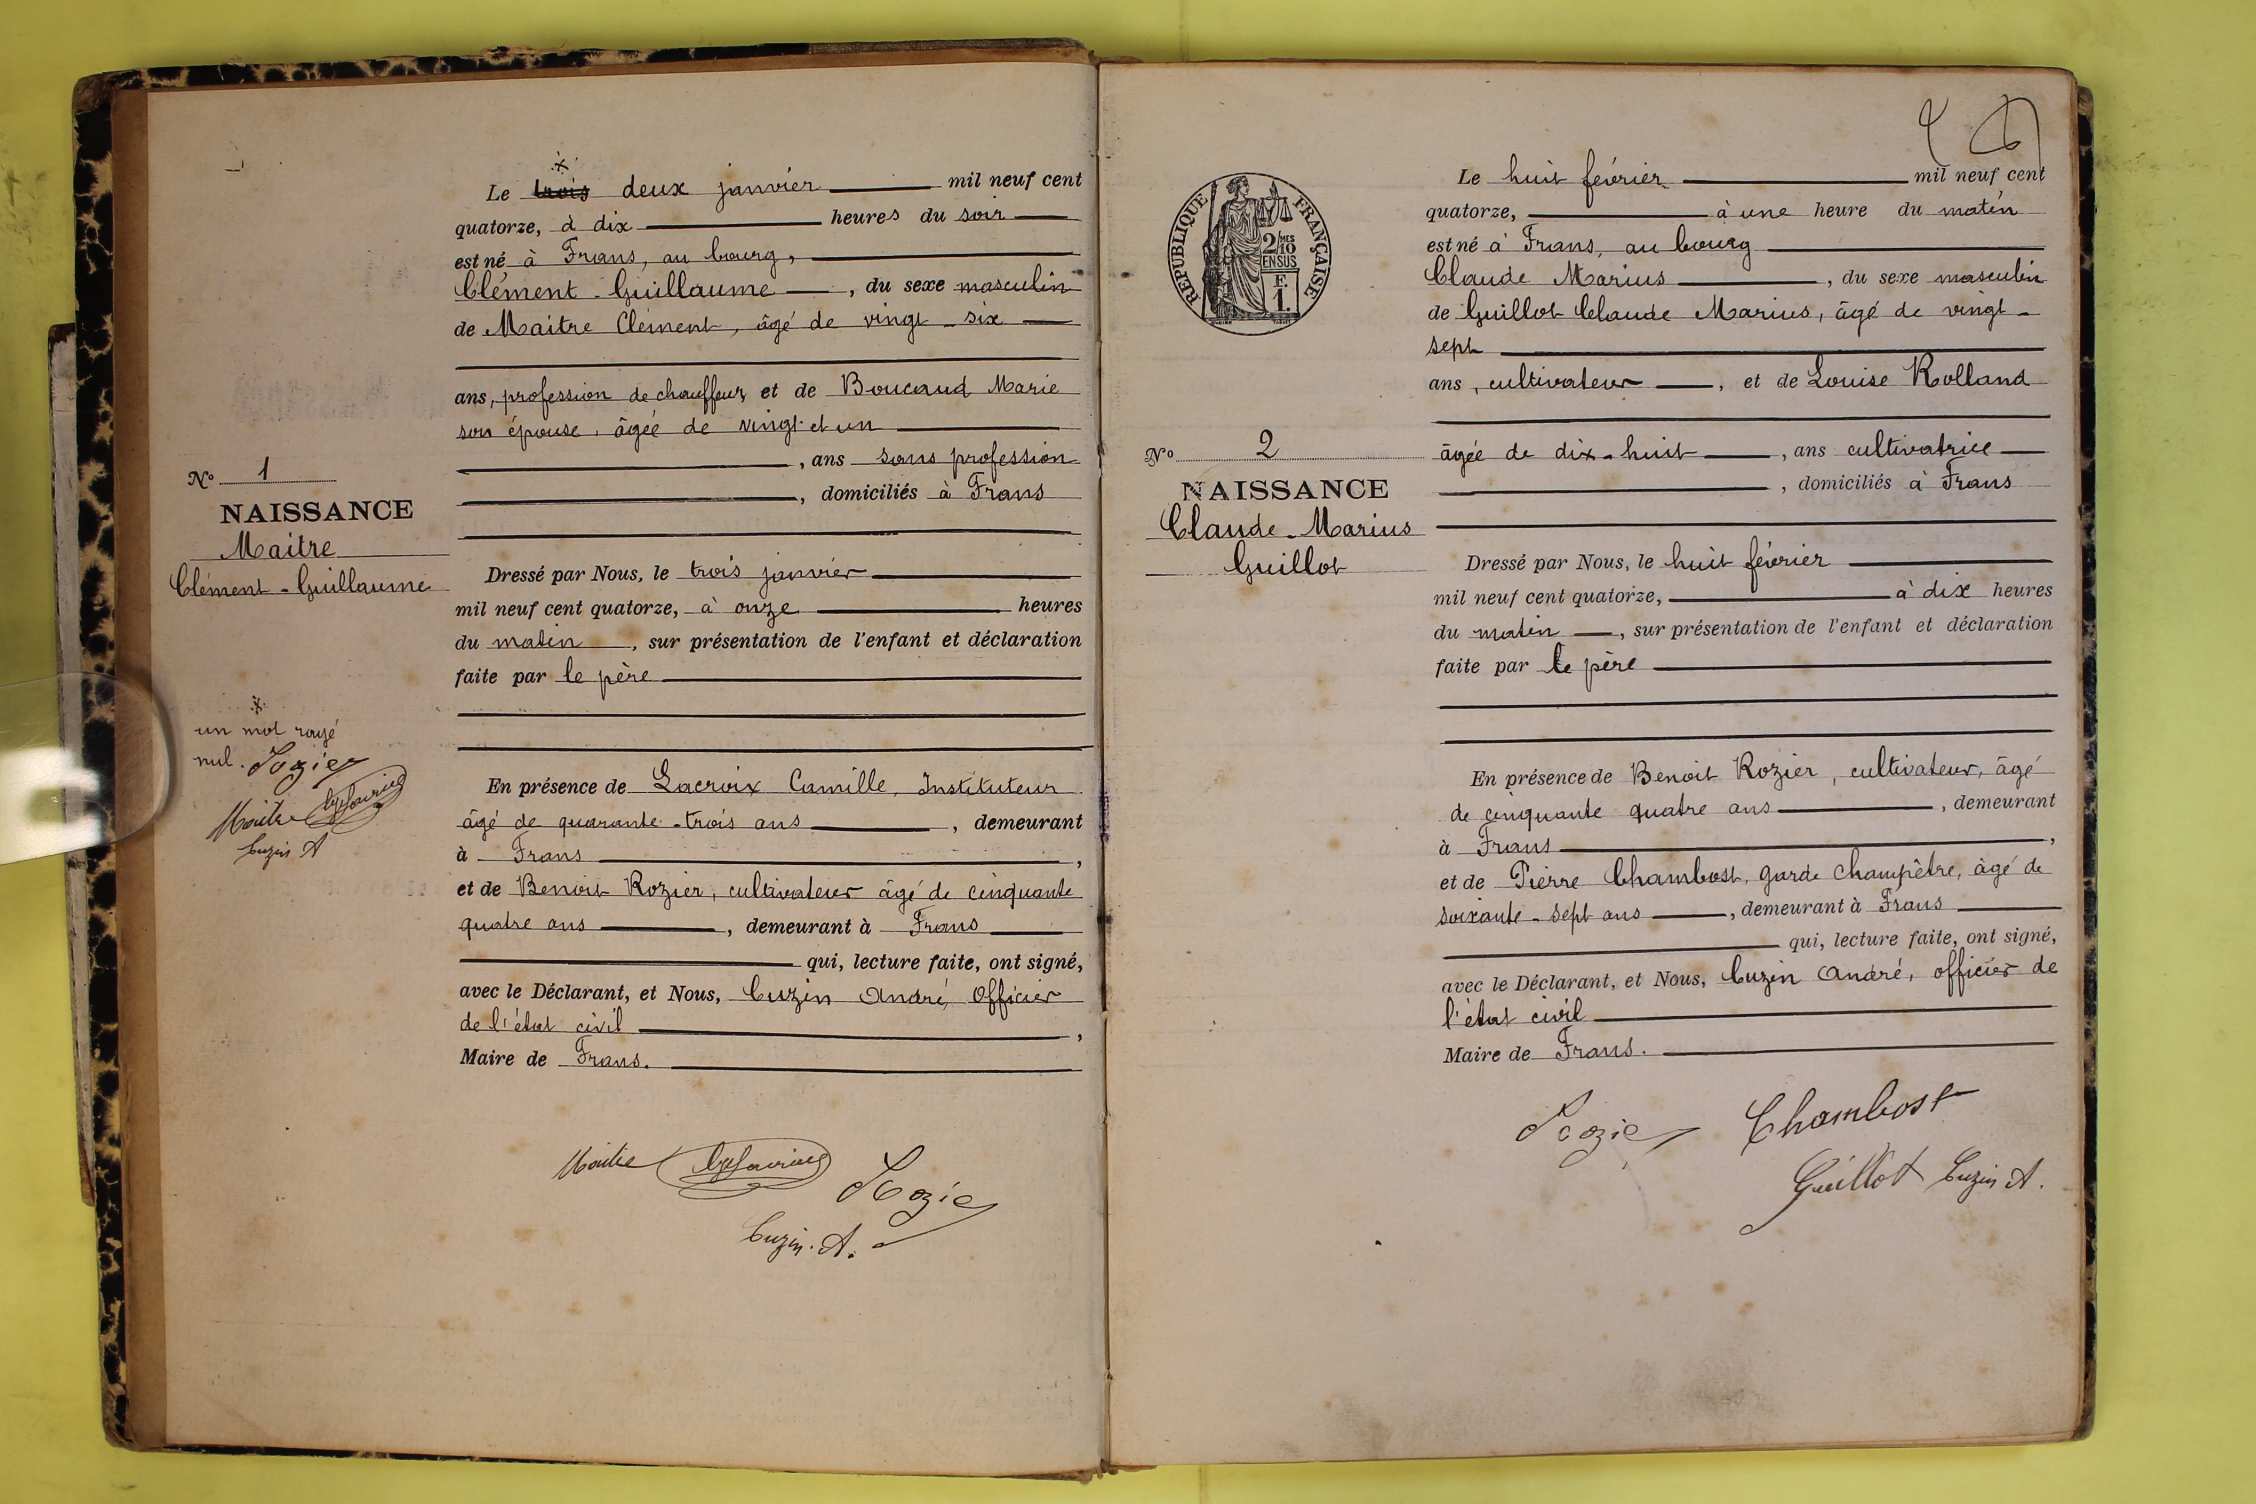 Le trois deux janvier mil neuf cent
quatorze, à dix heures du soir
est né à Frans, au bourg,
Clément - Guillaume, du sexe masculin
de Maitre Clément, âgé de vingt-six
ans, profession de chauffeur, et de Boucaud Marie
son épouse, âgée de vingt et un
, ans sans profession
, domiciliés à Frans
No 1
NAISSANCE
Maitre
Clément - Guillaume
Dressé par Nous, le trois janvier
mil neuf cent quatorze, à onze heures
du matin, sur présentation de l'enfant et déclaration
faite par le père
un mot rayé
nul. Rozier
Maitre
Cuzin A
En présence de Lacroix Camille, Instituteur
âgé de quarante-trois ans, demeurant
à Frans,
et de Benoit Rozier, cultivateur âgé de cinquante
quatre ans, demeurant à Frans
qui, lecture faite, ont signé,
avec le Déclarant, et Nous, Cuzin André, Officier
de l'état civil,
Maire de Frans.
Maitre Rozier
Cuzin. A.
RÉPUBLIQUE FRANÇAISE
2/10 MES
EN SUS
F.
1.
Le huit février mil neuf cent
quatorze, à une heure du matin
est né à Frans, au bourg
Claude Marius, du sexe masculin
de Guillot Claude Marius, âgé de vingt-
sept
ans, cultivateur, et de Louise Rolland
âgée de dix-huit, ans cultivatrice
, domiciliés à Frans
No 2
NAISSANCE
Claude - Marius
Guillot
Dressé par Nous, le huit février
mil neuf cent quatorze, à dix heures
du matin, sur présentation de l'enfant et déclaration
faite par le père
En présence de Benoit Rozier, cultivateur, âgé
de cinquante quatre ans, demeurant
à Frans,
et de Pierre Chambost, garde champêtre, âgé de
soixante-sept ans, demeurant à Frans
qui, lecture faite, ont signé,
avec le Déclarant, et Nous, Cuzin André, officier de
l'état civil
Maire de Frans.
Rozier Chambost
Guillot Cuzin A.